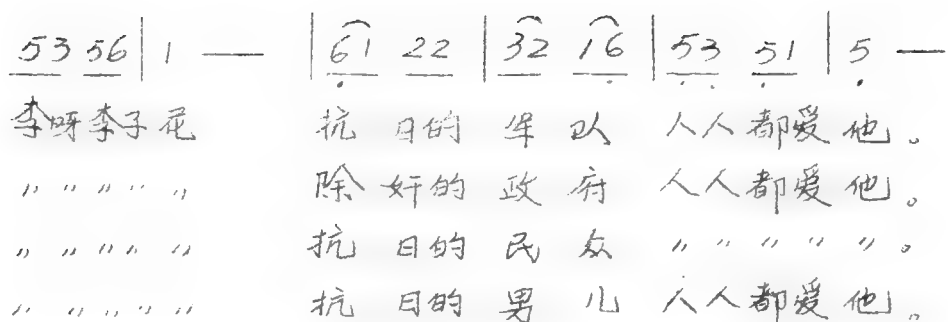 53 56 | 1 — | 61 22 | 32 16 | 53 51 | 5 —
李呀李子花 抗日的军队 人人都爱他。
〃 〃 〃 〃 〃 除奸的政府 人人都爱他。
〃 〃 〃 〃 〃 抗日的民众 〃 〃 〃 〃 〃。
〃 〃 〃 〃 〃 抗日的男儿 人人都爱他。